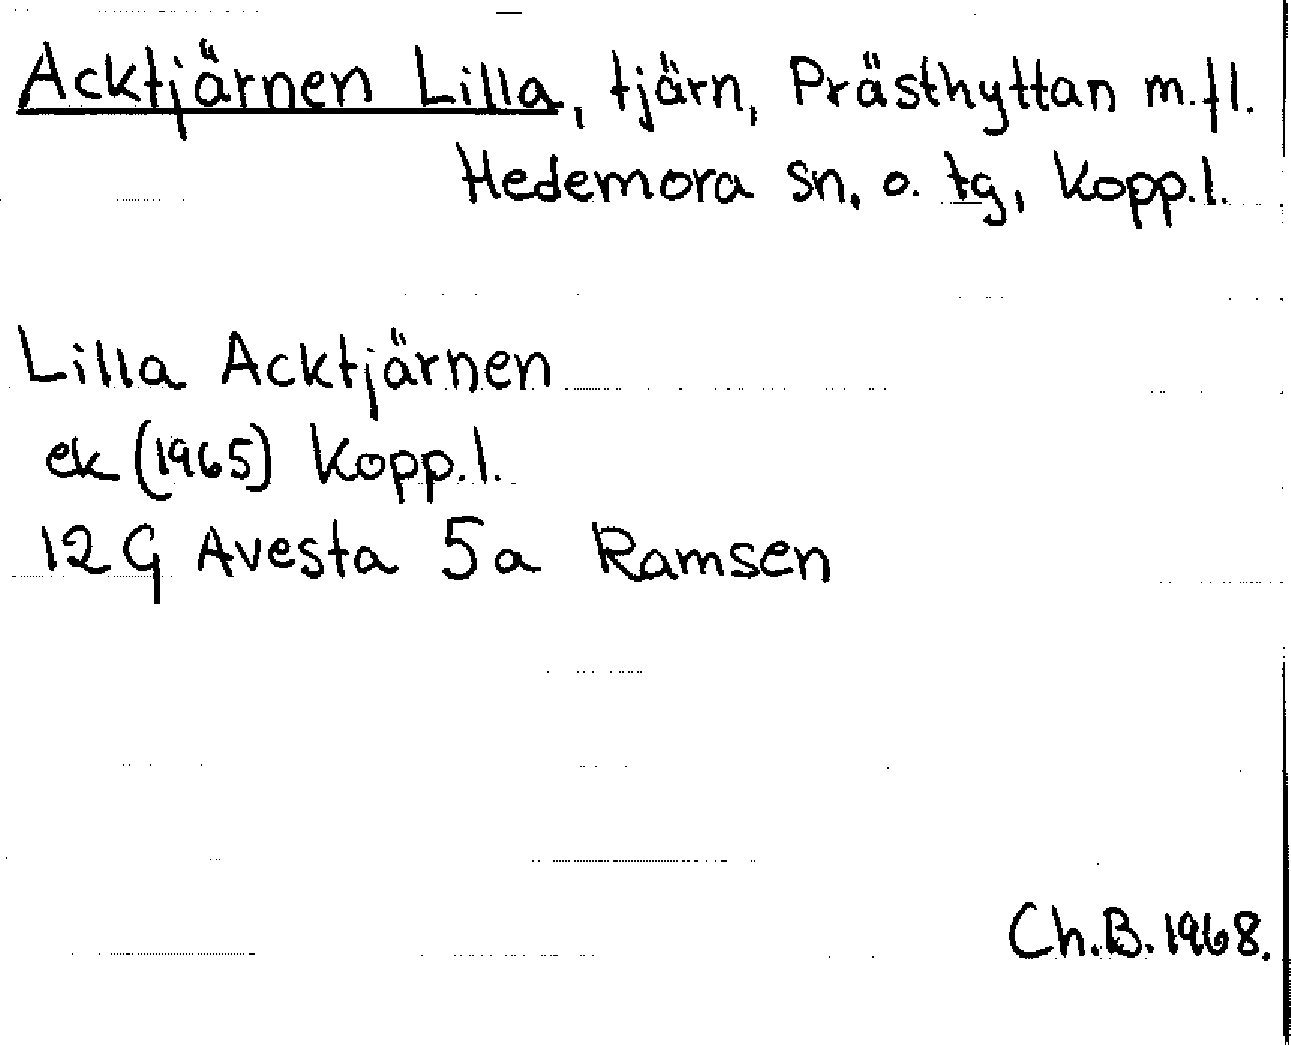 Acktjärnen Lilla, tjärn, Prästhyttan m.fl.
Hedemora sn. o. tg, Kopp.l.
Lilla Acktjärnen
ek (1965) Kopp.l.
12G Avesta 5a Ramsen
Ch.B. 1968.